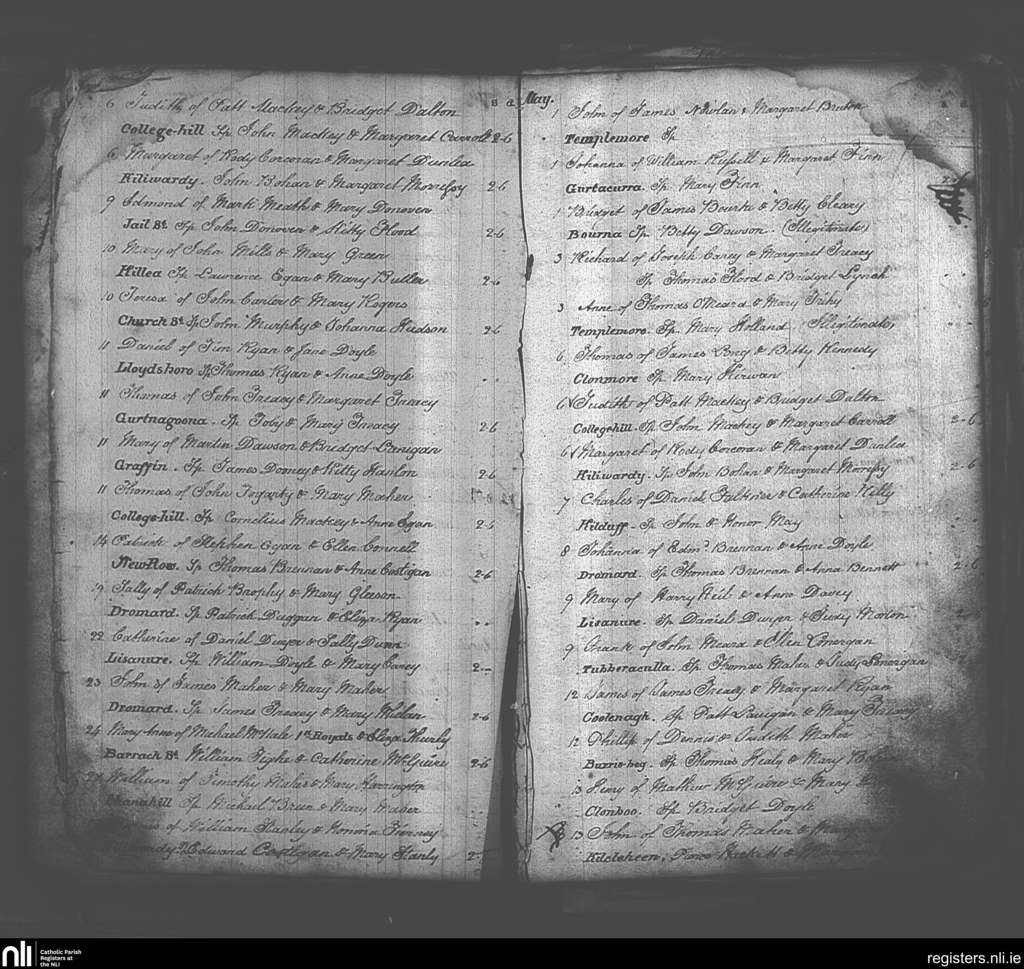 6 Judith of Patt Mackey & Bridget Dalton
College-hill Sp John Mackey & Margaret Carroll 2-6
6 Margaret of Rody Corcoran & Margaret Dunlea
Kiliwardy. John Bohan & Margaret Morrissy 2-6
9 Edmond of Mark Meath & Mary Donoven
Jail St. Sp John Donoven & Kitty Flood 2-6
10 Mary of John Mills & Mary Green
Killea Sp Lawrence Egan & Mary Butler 2-6
10 Teresa of John Carter & Mary Rogers
Church St. Sp John Murphy & Johanna Hudson 2-6
11 Daniel of Tim Ryan & Jane Doyle
Lloydsboro Sp Thomas Ryan & Anne Doyle
11 Thomas of John Treacy & Margaret Treacy
Gurtnagoona. Sp Toby & Mary Treacy 2-6
11 Mary of Martin Dawson & Bridget Lanigan
Graffin. Sp James Dooney & Kitty Hanlon 2-6
11 Thomas of John Fogarty & Mary Maher
College-hill. Sp Cornelius Mackey & Anne Egan 2-6
14 Patrick of Stephen Egan & Ellen Connell
New Row. Sp Thomas Brennan & Anne Costigan 2-6
19 Sally of Patrick Brophy & Mary Gleeson
Dromard. Sp Patrick Duggan & Eliza Ryan
22 Catherine of Daniel Dwyer & Sally Dunn
Lisanure. Sp William Doyle & Mary Carey 2--
23 John of James Maher & Mary Maher
Dromard. Sp James Treacy & Mary Whelan 2-6
24 Mary Anne of Michael McHale 1st Royals & Eliza Thurly
Barrack St. William Fipke & Catherine McGuire 2-6
William of Timothy Maher & Mary Harrington
Shanahill Sp Michael Breen & Mary Maher
of William Stanley & Honora Tierney
Edward Costigan & Mary Stanly 2-
s d May.
1 John of James Nowlan & Margaret Bruton
Templemore Sp
1 Johanna of William Russell & Margaret Finn
Gurtacurra. Sp Mary Finn 2-6
1 Bridget of James Bourke & Betty Cleary
Bourna Sp Betty Dawson. (Illegitimate)
3 Richard of Joseph Carey & Margaret Treacy
Sp Thomas Flord & Bridget Lynch
3 Anne of Thomas OMeara & Mary Fihy
Templemore. Sp. Mary Holland (Illegitimate)
6 Thomas of James Long & Betty Kennedy
Clonmore Sp Mary Kirwan
6 Judith of Patt Mackey & Bridget Dalton
College-hill. Sp John Mackey & Margaret Carroll 2-6
6 Margaret of Rody Corcoran & Margaret Dunlea
Kiliwardy. Sp John Bohan & Margaret Morrissy 2-6
7 Charles of Daniel Falkner & Catherine Kelly
Kilduff. Sp John & Honor May
8 Johanna of Edmd. Brennan & Anne Doyle
Dromard. Sp Thomas Brennan & Anna Bennett 2-6
9 Mary of Harry Neil & Anne Davey
Lisanure. Sp Daniel Dwyer & Judy Morton
9 Frank of John Meara & Ellen Lonergan
Tubberaculla. Sp Thomas Maher & Judy Lonergan
12 James of James Treacy & Margaret Ryan
Coolenagh. Sp Patt Lanigan & Mary Treacy
12 Phillip of Dennis & Judith Maher
Burris-beg. Sp Thomas Healy & Mary
13 Remy of Mathew McGuire & Mary
Clonboo. Sp Bridget Doyle
13 John of Thomas Maher &
Kilclaheen. Pierce Hackett &
nli Catholic Parish
Registers at
the NLI
registers.nli.ie